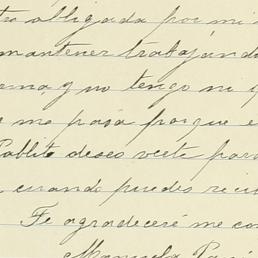 obligada por mi
mantener trabajand
y no tengo ni
me pasa porque
Pablito deseo verte para
cuando puedes
Te agradeceré me con
Manuela